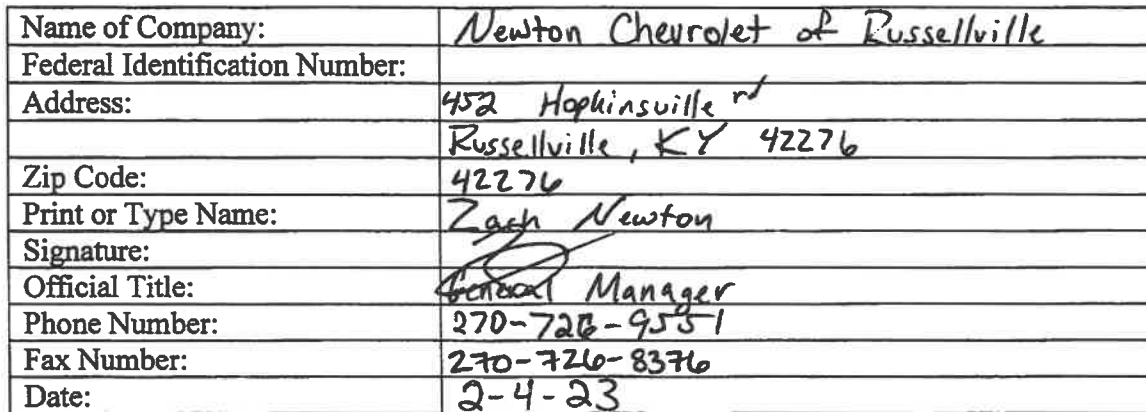 Name of Company: Newton Chevrolet of Russellville
Federal Identification Number:
Address: 452 Hopkinsville rd
Russellville, KY 42276
Zip Code: 42276
Print or Type Name: Zach Newton
Signature:
Official Title: General Manager
Phone Number: 270-726-9551
Fax Number: 270-726-8376
Date: 2-4-23